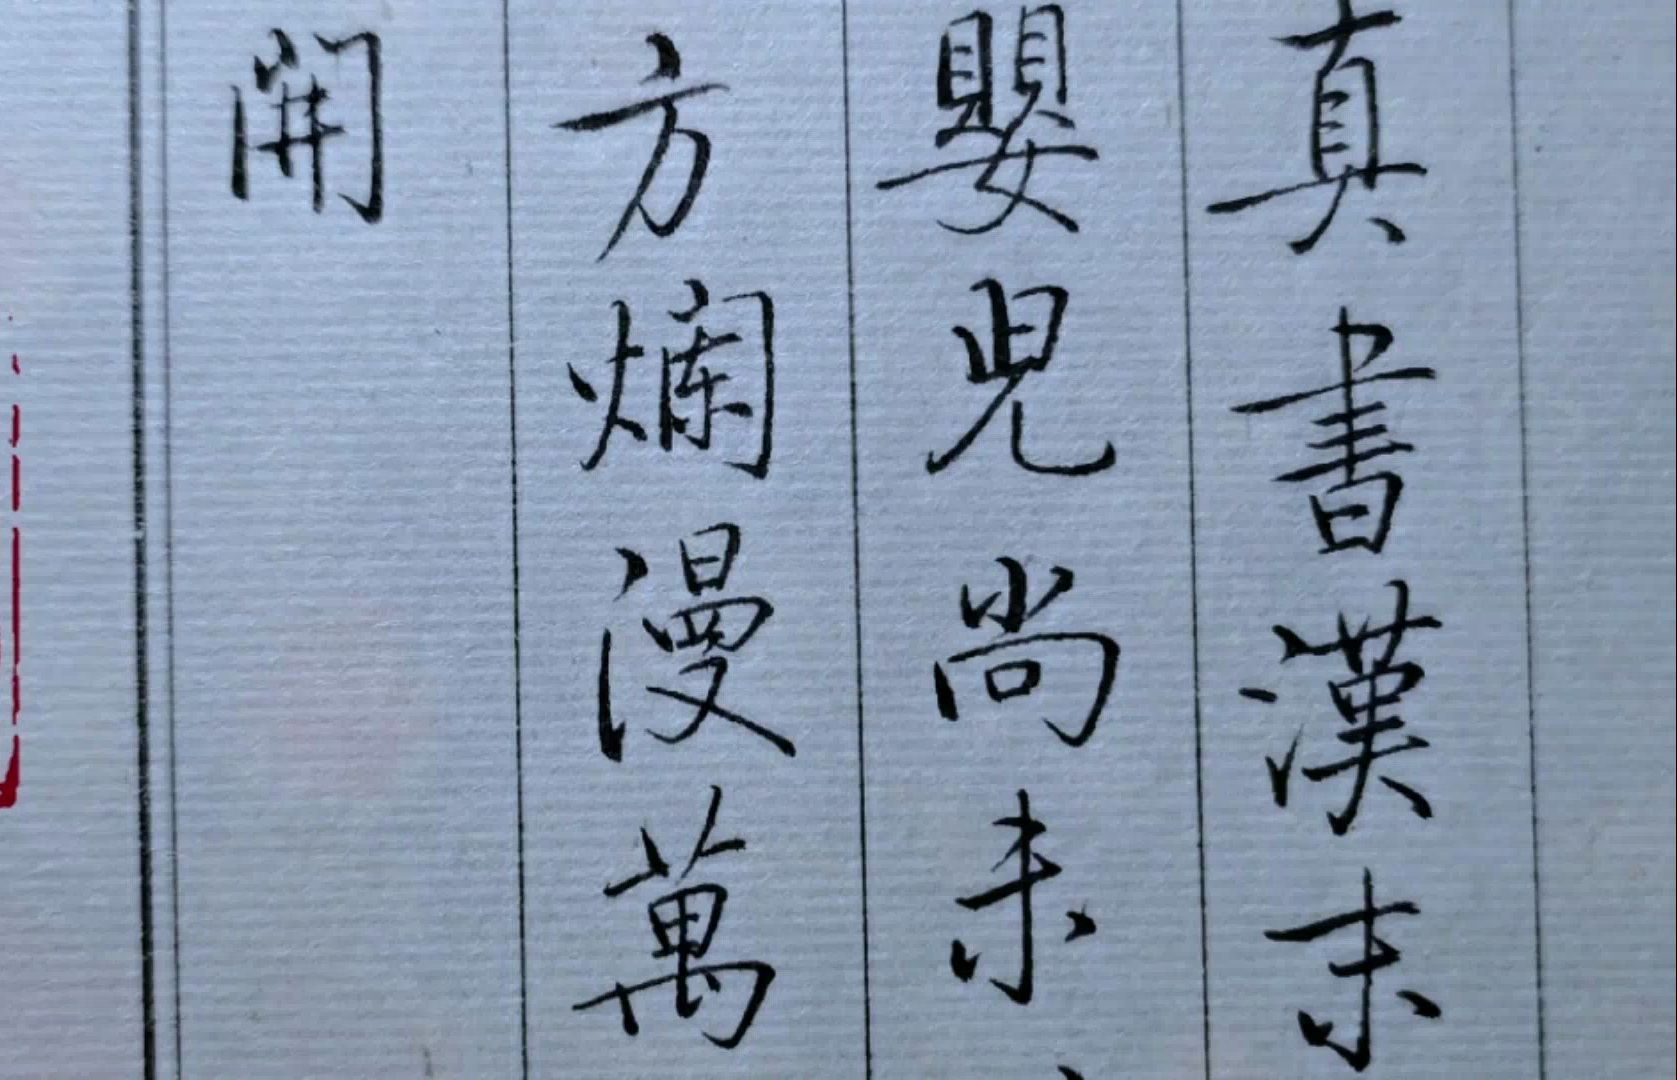 真書漢末
嬰兒尚未
方爛漫萬
開